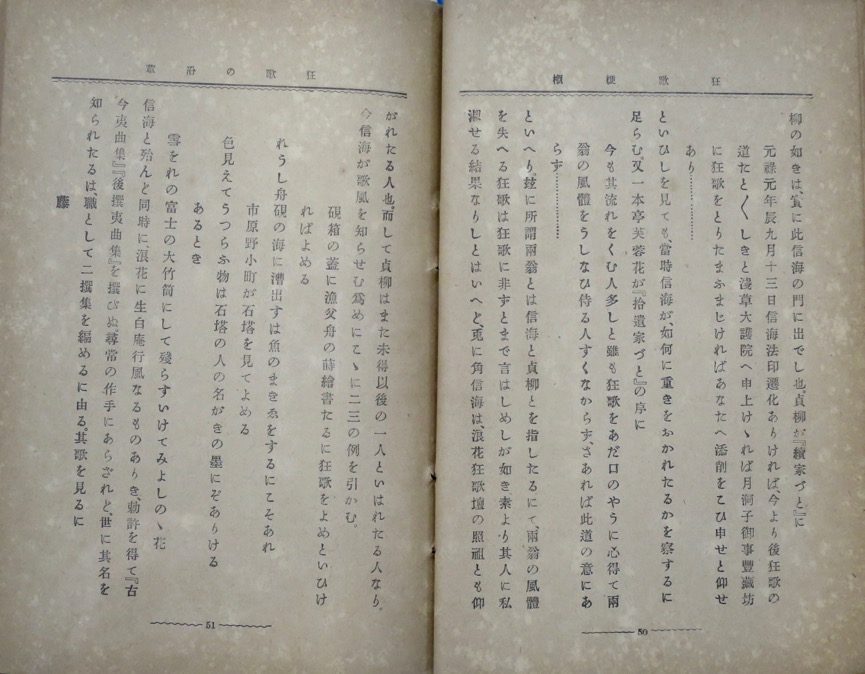 狂歌梗概
柳の如きは、實に此信海の門に出でし也貞柳が『續家づと』に
元祿元年辰九月十三日信海法印遷化ありければ、今より後狂歌の
道たど〱しきと淺草大護院へ申上けゝれば月洞子御事豐藏坊
に狂歌をとりたまふまじければあなたへ添削をこひ申せと仰せ
あり…………
といひしを見ても、當時信海が、如何に重きをおかれたるかを察するに
足らむ。又一本亭芙蓉花が『拾遺家づと』の序に
今も其流れをくむ人多しと雖も狂歌をあだ口のやうに心得て兩
翁の風體をうしなひ侍る人すくなからず、されば此道の意にあ
らず…………
といへり。玆に所謂兩翁とは信海と貞柳とを指したるにて、兩翁の風體
を失へる狂歌は狂歌に非ずとまで言はしめしが如き素より其人に私
淑せる結果なりしとはいへど、兎に角信海は、浪花狂歌壇の照祖とも仰
50
狂歌の沿革
がれたる人也。而して貞柳はまた未得以後の一人といはれたる人なり。
今信海が歌風を知らせむ爲めにこゝに二三の例を引かむ。
硯箱の蓋に漁父舟の蒔繪書たるに狂歌をよめといひけ
ればよめる
れうし舟硯の海に漕出すは魚のまきゑをするにこそあれ
市原野小町が石塔を見てよめる
色見えてうつらふ物は石塔の人の名がきの墨にぞありける
あるとき
雪をれの富士の大竹筒にして殘らずいけてみよしのゝ花
信海と殆んど同時に、浪花に生白庵行風なるものありき、勅許を得て『古
今夷曲集』『後撰夷曲集』を撰びぬ、尋常の作手にあらざれど、世に其名を
知られたるは、職として二撰集を編めるに由る。其歌を見るに
藤
51